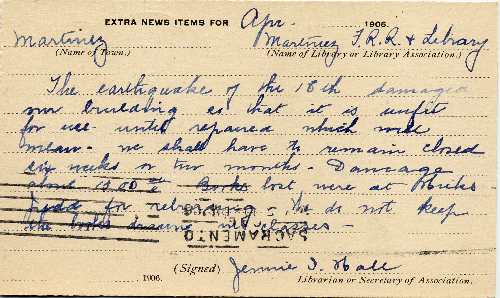 EXTRA NEWS ITEMS FOR Apr. 1906.
Martinez Martinez F.R.R. & Library
(Name of Town.) (Name of Library or Library Association.)
The earthquake of the 18th damaged
our building so that it is unfit
for use until repaired which will
mean - we shall have to remain closed
six weeks or two months - Damage
about 1500 Books lost were at Hicks
Judd for We do not keep
the books
SACRAMENTO
1906. (Signed) Jennie I. Hall
Librarian or Secretary of Association.